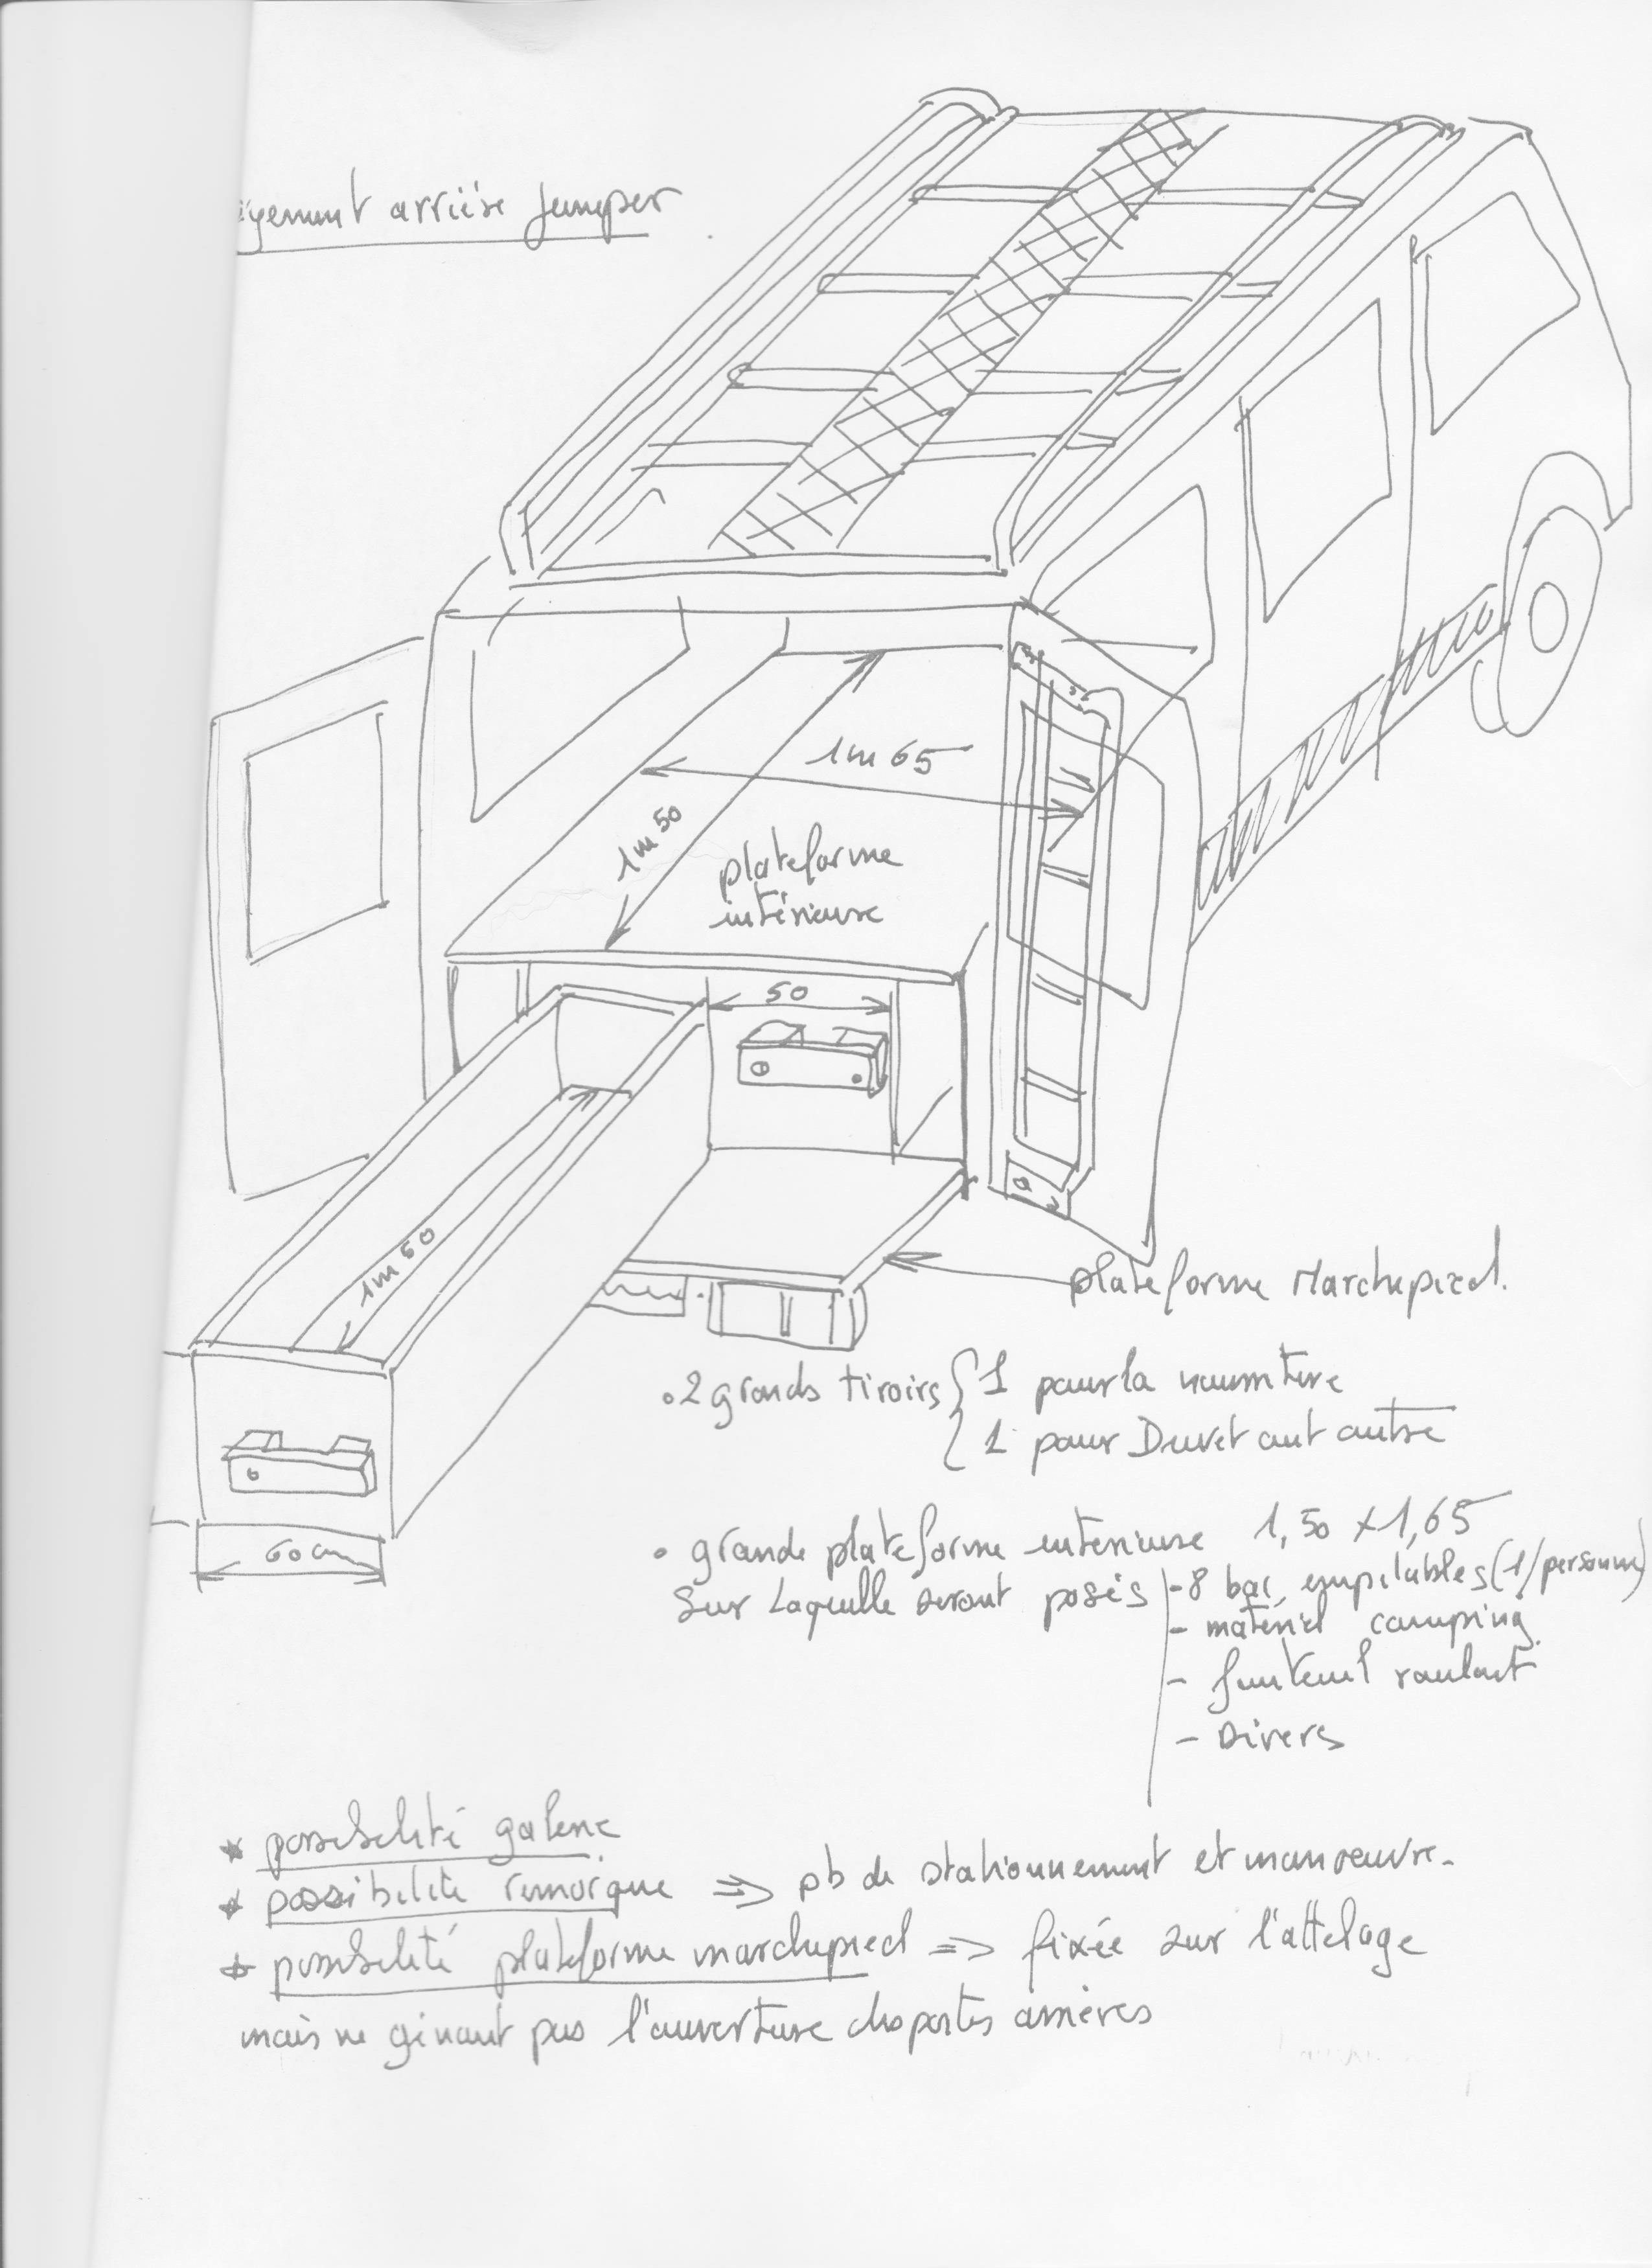 gement arrière Jumper
1m65
1m50
plateforme
intérieure
50
1m50
plateforme Marchepied.
• 2 grands tiroirs { 1 pour la nourriture
{ 1 pour Duvet aut autre
60 cm
• grande plateforme interieure 1,50 x 1,65
sur laquelle seront posés - 8 bac empilables (1/personne)
- matériel camping
- fauteuil roulant
- Divers
* possibilité galerie
* possibilité remorque => pb de stationnement et manoeuvre.
* possibilité plateforme marchepied => fixée sur l'attelage
mais ne gênant pas l'ouverture des portes arrières